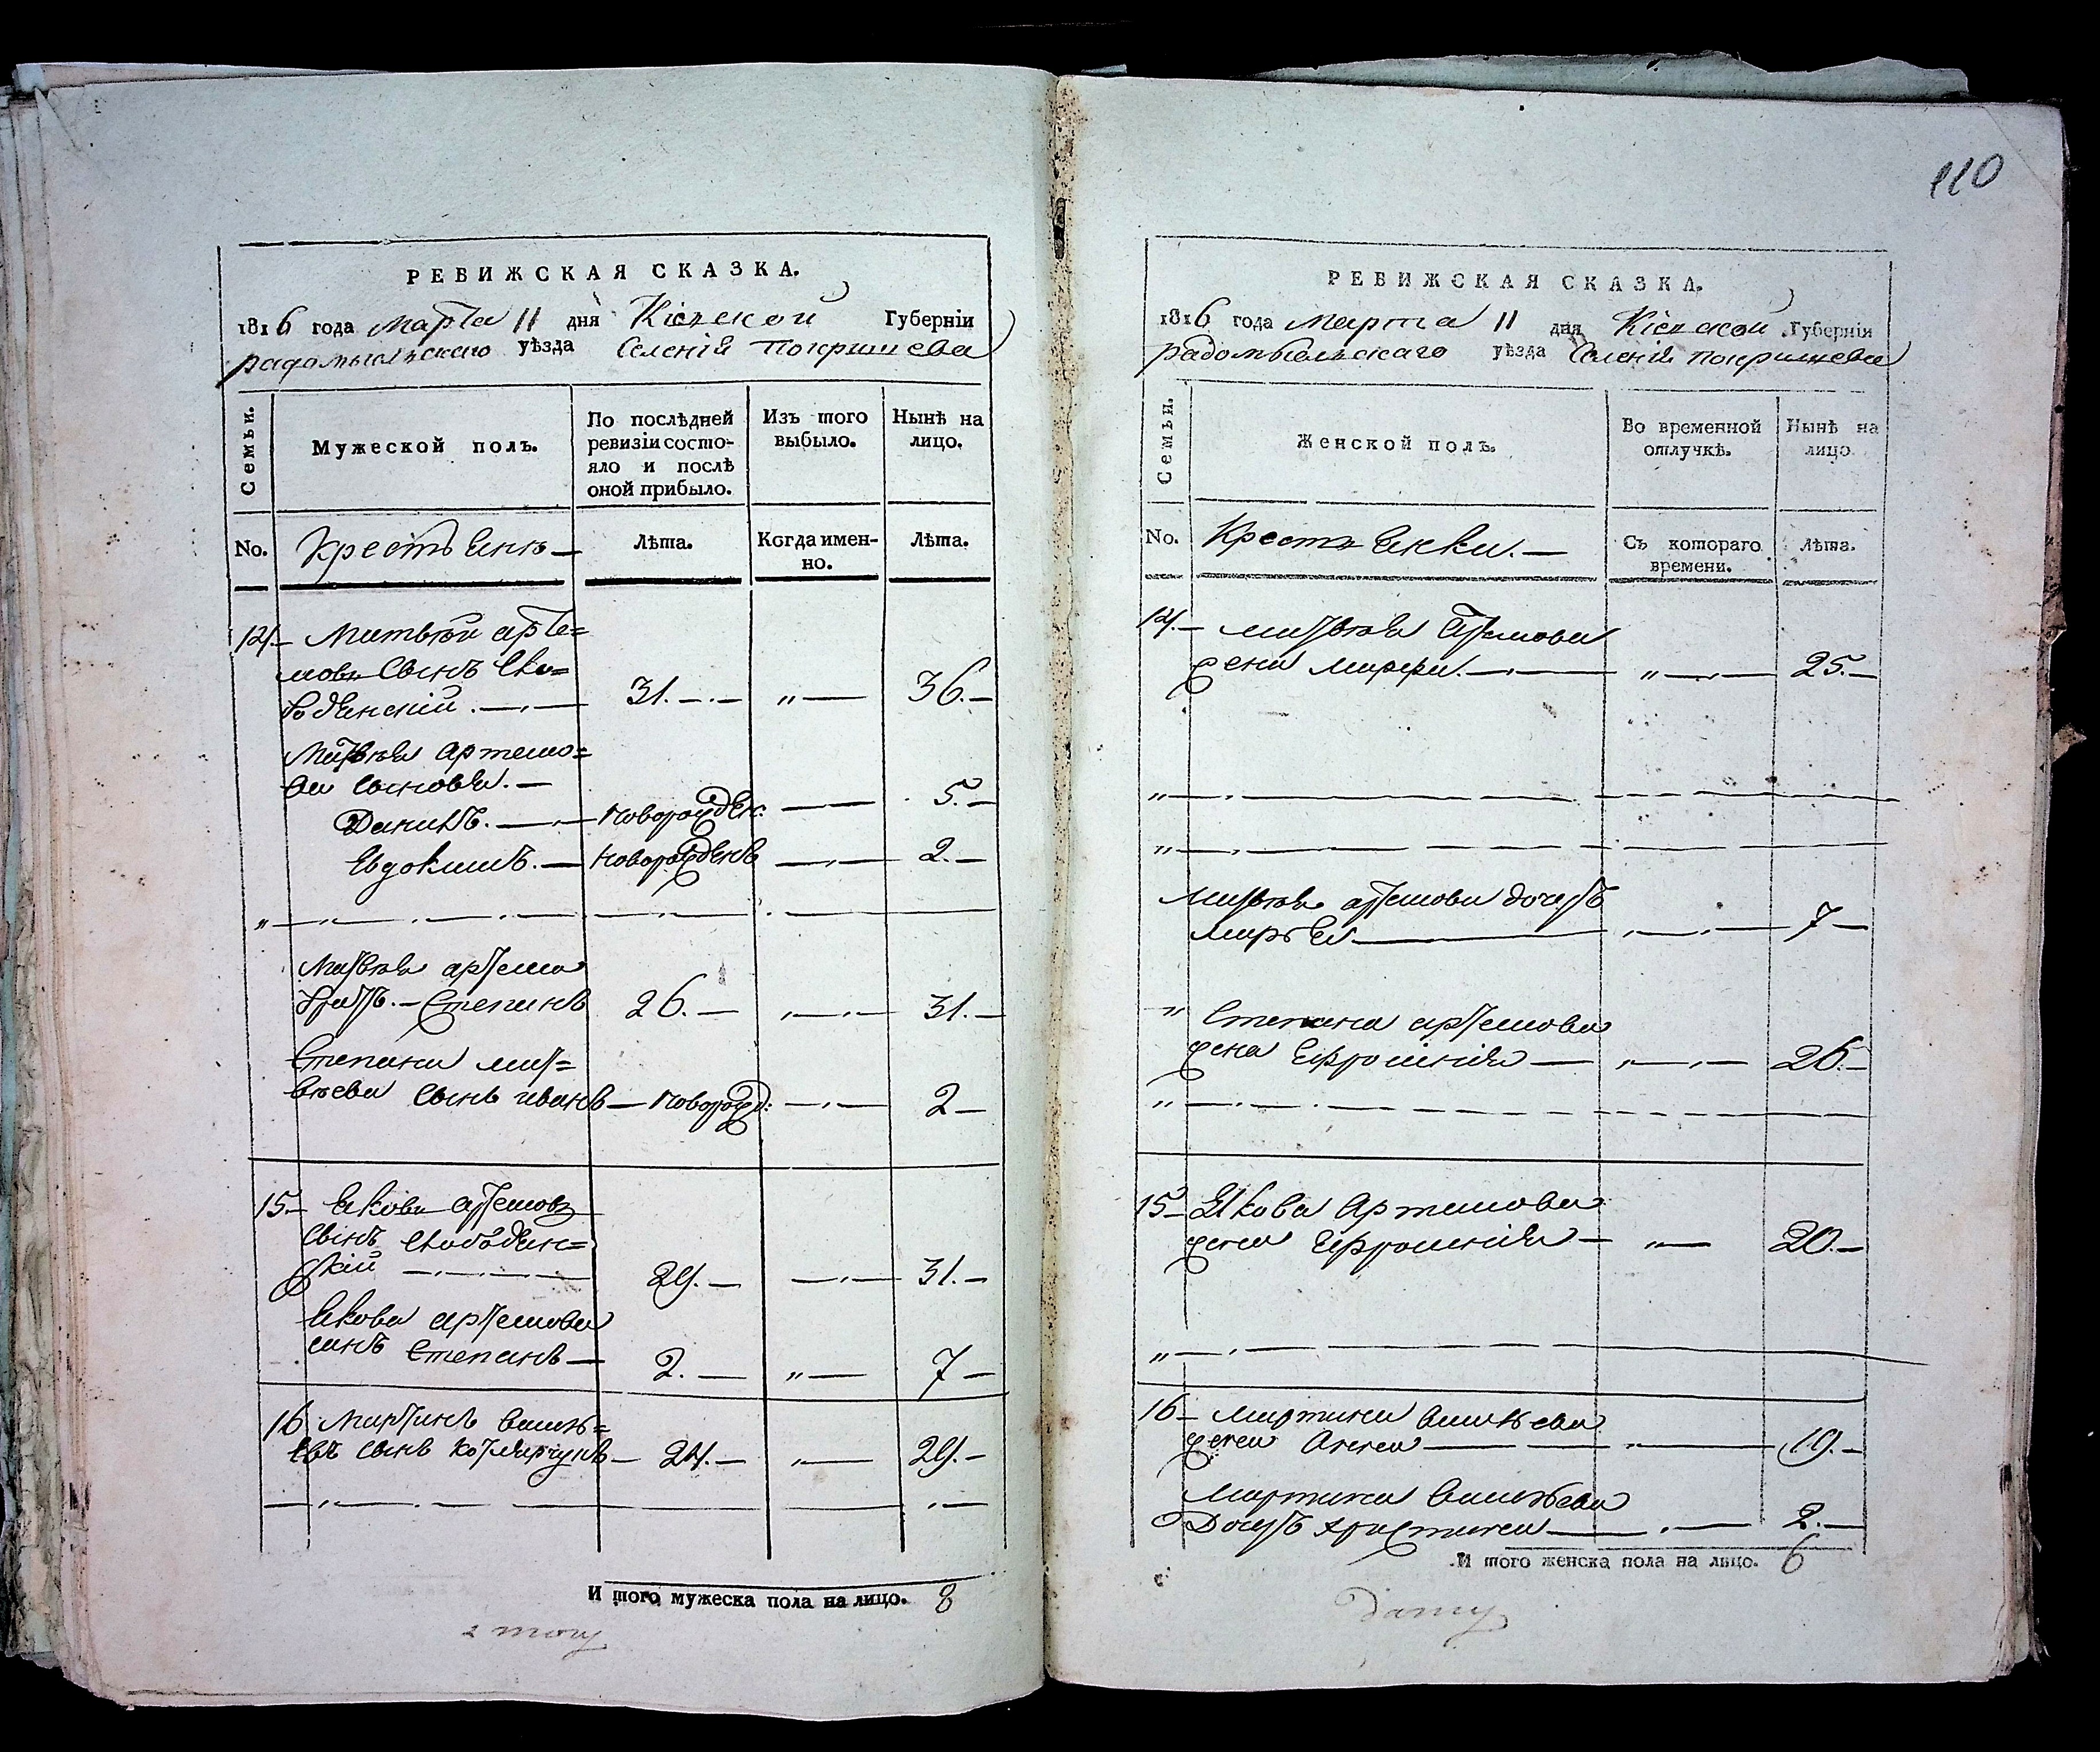 110
РЕВИЖСКАЯ СКАЗКА.
1816 года Марта 11 дня Кіевской Губерніи
радомысльскаго уѣзда Селенія Покришева
Семьи.
Мужеской полъ.
По послѣдней
ревизіи состо-
яло и послѣ
оной прибыло.
Изъ того
выбыло.
Нынѣ на
лицо.
No.
Крестьяне
Лѣта.
Когда имен-
но.
Лѣта.
14 Матвѣй арте=
мовъ Сынъ Сло=
бодянскій 31. " 36.
Матвѣя артемо=
ва Сыновья.
Данилъ. новорожден: 5.
Евдокимъ. новорожденъ 2.
Матвѣя артемо
братъ. Степанъ 26. 31.
Степана мат=
вѣева Сынъ иванъ новорожд: 2
15 Яковъ артемовъ
Сынъ Слободян=
скій 29. 31.
Якова артемова
синъ Степанъ 2. " 7
16 Мартинъ
Сынъ 24. " 29.
И того мужеска пола на лицо. 8
РЕВИЖСКАЯ СКАЗКА.
1816 года Марта 11 дня Кіевской Губерніи
радомысльскаго уѣзда Селенія Покришева
Семьи.
Женской полъ.
Во временной
отлучкѣ.
Нынѣ на
лицо
No.
Крестьянки.
Съ котораго
времени.
Лѣта.
14. Матвѣя Артемова
жена Марфа. " 25.
Матвѣя артемова дочеть
Марья 7
" Степана артемова
жена Ефросинія 26.
15 Якова Артемова
жена Ефросинія " 20.
16 Мартина
жена Анна " 19.
Мартина
Дочеть христина 2.
И того женска пола на лицо. 6